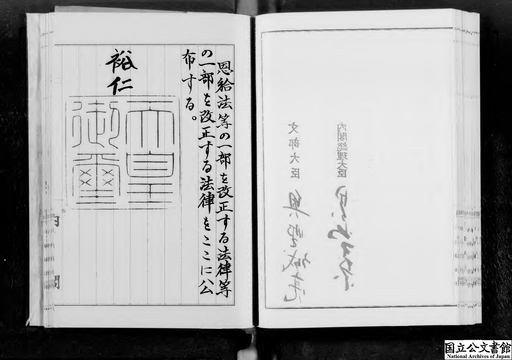 恩給法等の一部を改正する法律等
の一部を改正する法律をここに公
布する。
裕仁
天皇
御璽
内閣
内閣総理大臣
文部大臣
国立公文書館
National Archives of Japan